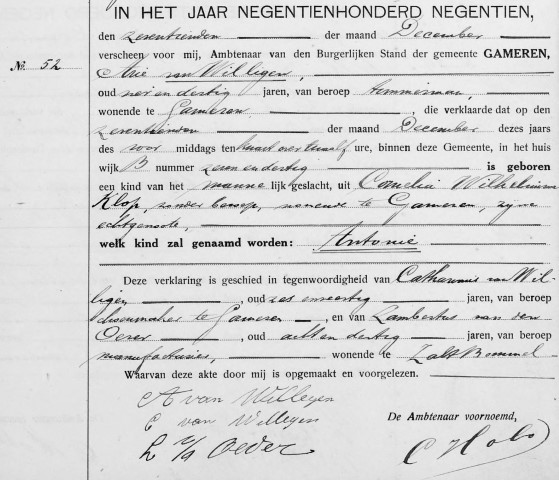 IN HET JAAR NEGENTIENHONDERD NEGENTIEN,
den zeventienden der maand December
verscheen voor mij, Ambtenaar van den Burgerlijken Stand der gemeente GAMEREN,
No. 52
Arie van Willigen,
oud en dertig jaren, van beroep timmerman,
wonende te Gameren die verklaarde dat op den
zeventienden der maand December dezes jaars
des voor middags ten kwart over twaalf ure, binnen deze Gemeente, in het huis
wijk B nummer zeven en dertig is geboren
een kind van het manne lijk geslacht, uit Cornelia Wilhelmina
Klop, zonder beroep, wonende te Gameren, zijne
echtgenoote,
welk kind zal genaamd worden: Antonie
Deze verklaring is geschied in tegenwoordigheid van van Wil-
ligen, oud zes en veertig jaren, van beroep
te Gameren, en van Lambertus van den
Oever, oud acht en dertig jaren, van beroep
manufacturier, wonende te Zalt Bommel
Waarvan deze akte door mij is opgemaakt en voorgelezen.
A van Willegen
C van Willegen
L v/d Oever
De Ambtenaar voornoemd,
C